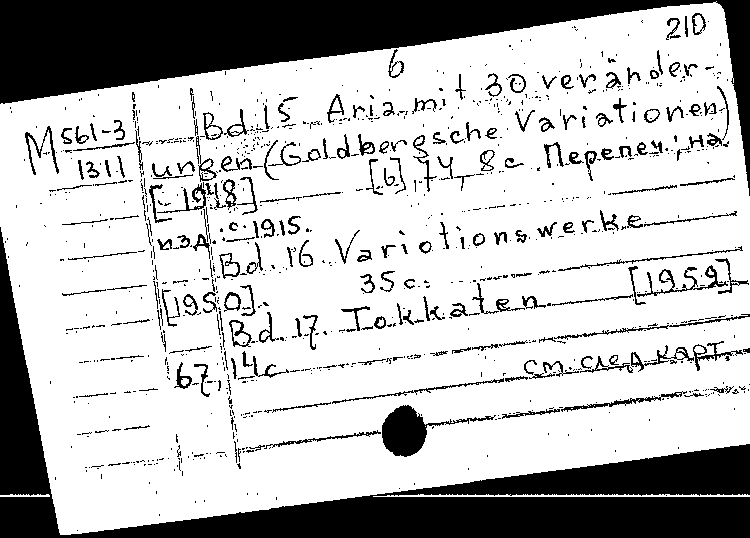 210
6
M 561-3
1311
Bd. 15 Aria mit 30 veränder-
ungen (Goldbergsche Variationen)
[1948] [6], 74, 8 с. Перепеч.; на
изд.: с. 1915.
Bd. 16. Variotionswerke
[1950]. 35 с.
Bd. 17. Tokkaten. [1959]
67, 14 с
см. след карт.